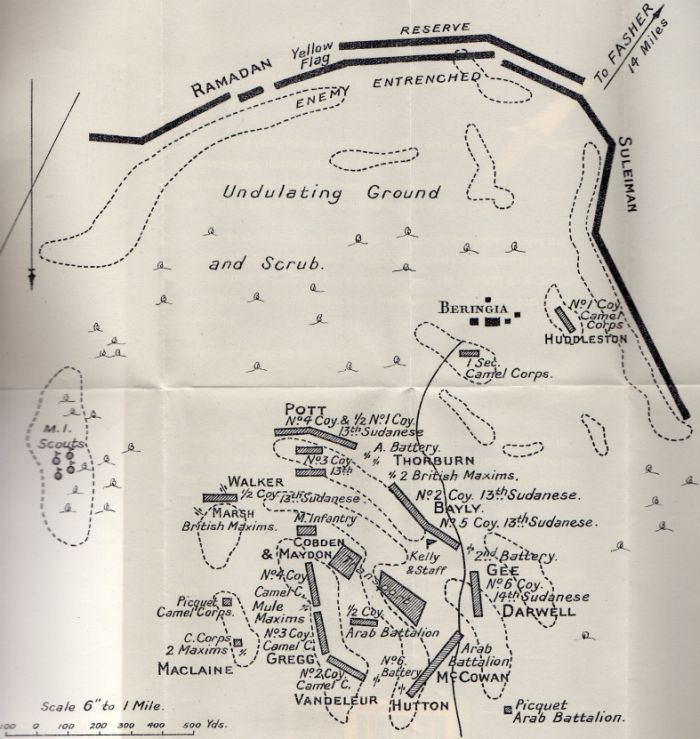 RESERVE
Yellow
Flag
RAMADAN
ENTRENCHED
ENEMY
To FASHER
14 Miles
SULEIMAN
Undulating Ground
and Scrub.
BERINGIA
No 1 Coy.
Camel
Corps
HUDDLESTON
1 Sec.
Camel Corps.
M.I.
Scouts
POTT
No 4 Coy & ½ No 1 Coy.
13th Sudanese
A. Battery.
THORBURN
No 3 Coy.
13th
2 British Maxims,
WALKER
½ Coy
13th Sudanese
MARSH
British Maxims.
No 2 Coy. 13th Sudanese.
BAYLY.
No 5 Coy. 13th Sudanese.
M. Infantry
COBDEN
& MAYDON
Transport
Kelly
& Staff
2nd Battery.
GEE
No 6 Coy.
14th Sudanese
DARWELL
No 4 Coy
Camel C.
Mule
Maxims
Picquet
Camel Corps.
½ Coy.
Arab Battalion
C. Corps
2 Maxims
MACLAINE
No 3 Coy
Camel C.
GREGG
No 2 Coy
Camel C.
VANDELEUR
No 6.
Battery
HUTTON
Arab
Battalion
McCOWAN
Picquet
Arab Battalion.
Scale 6" to 1 Mile.
100 0 100 200 300 400 500 Yds.